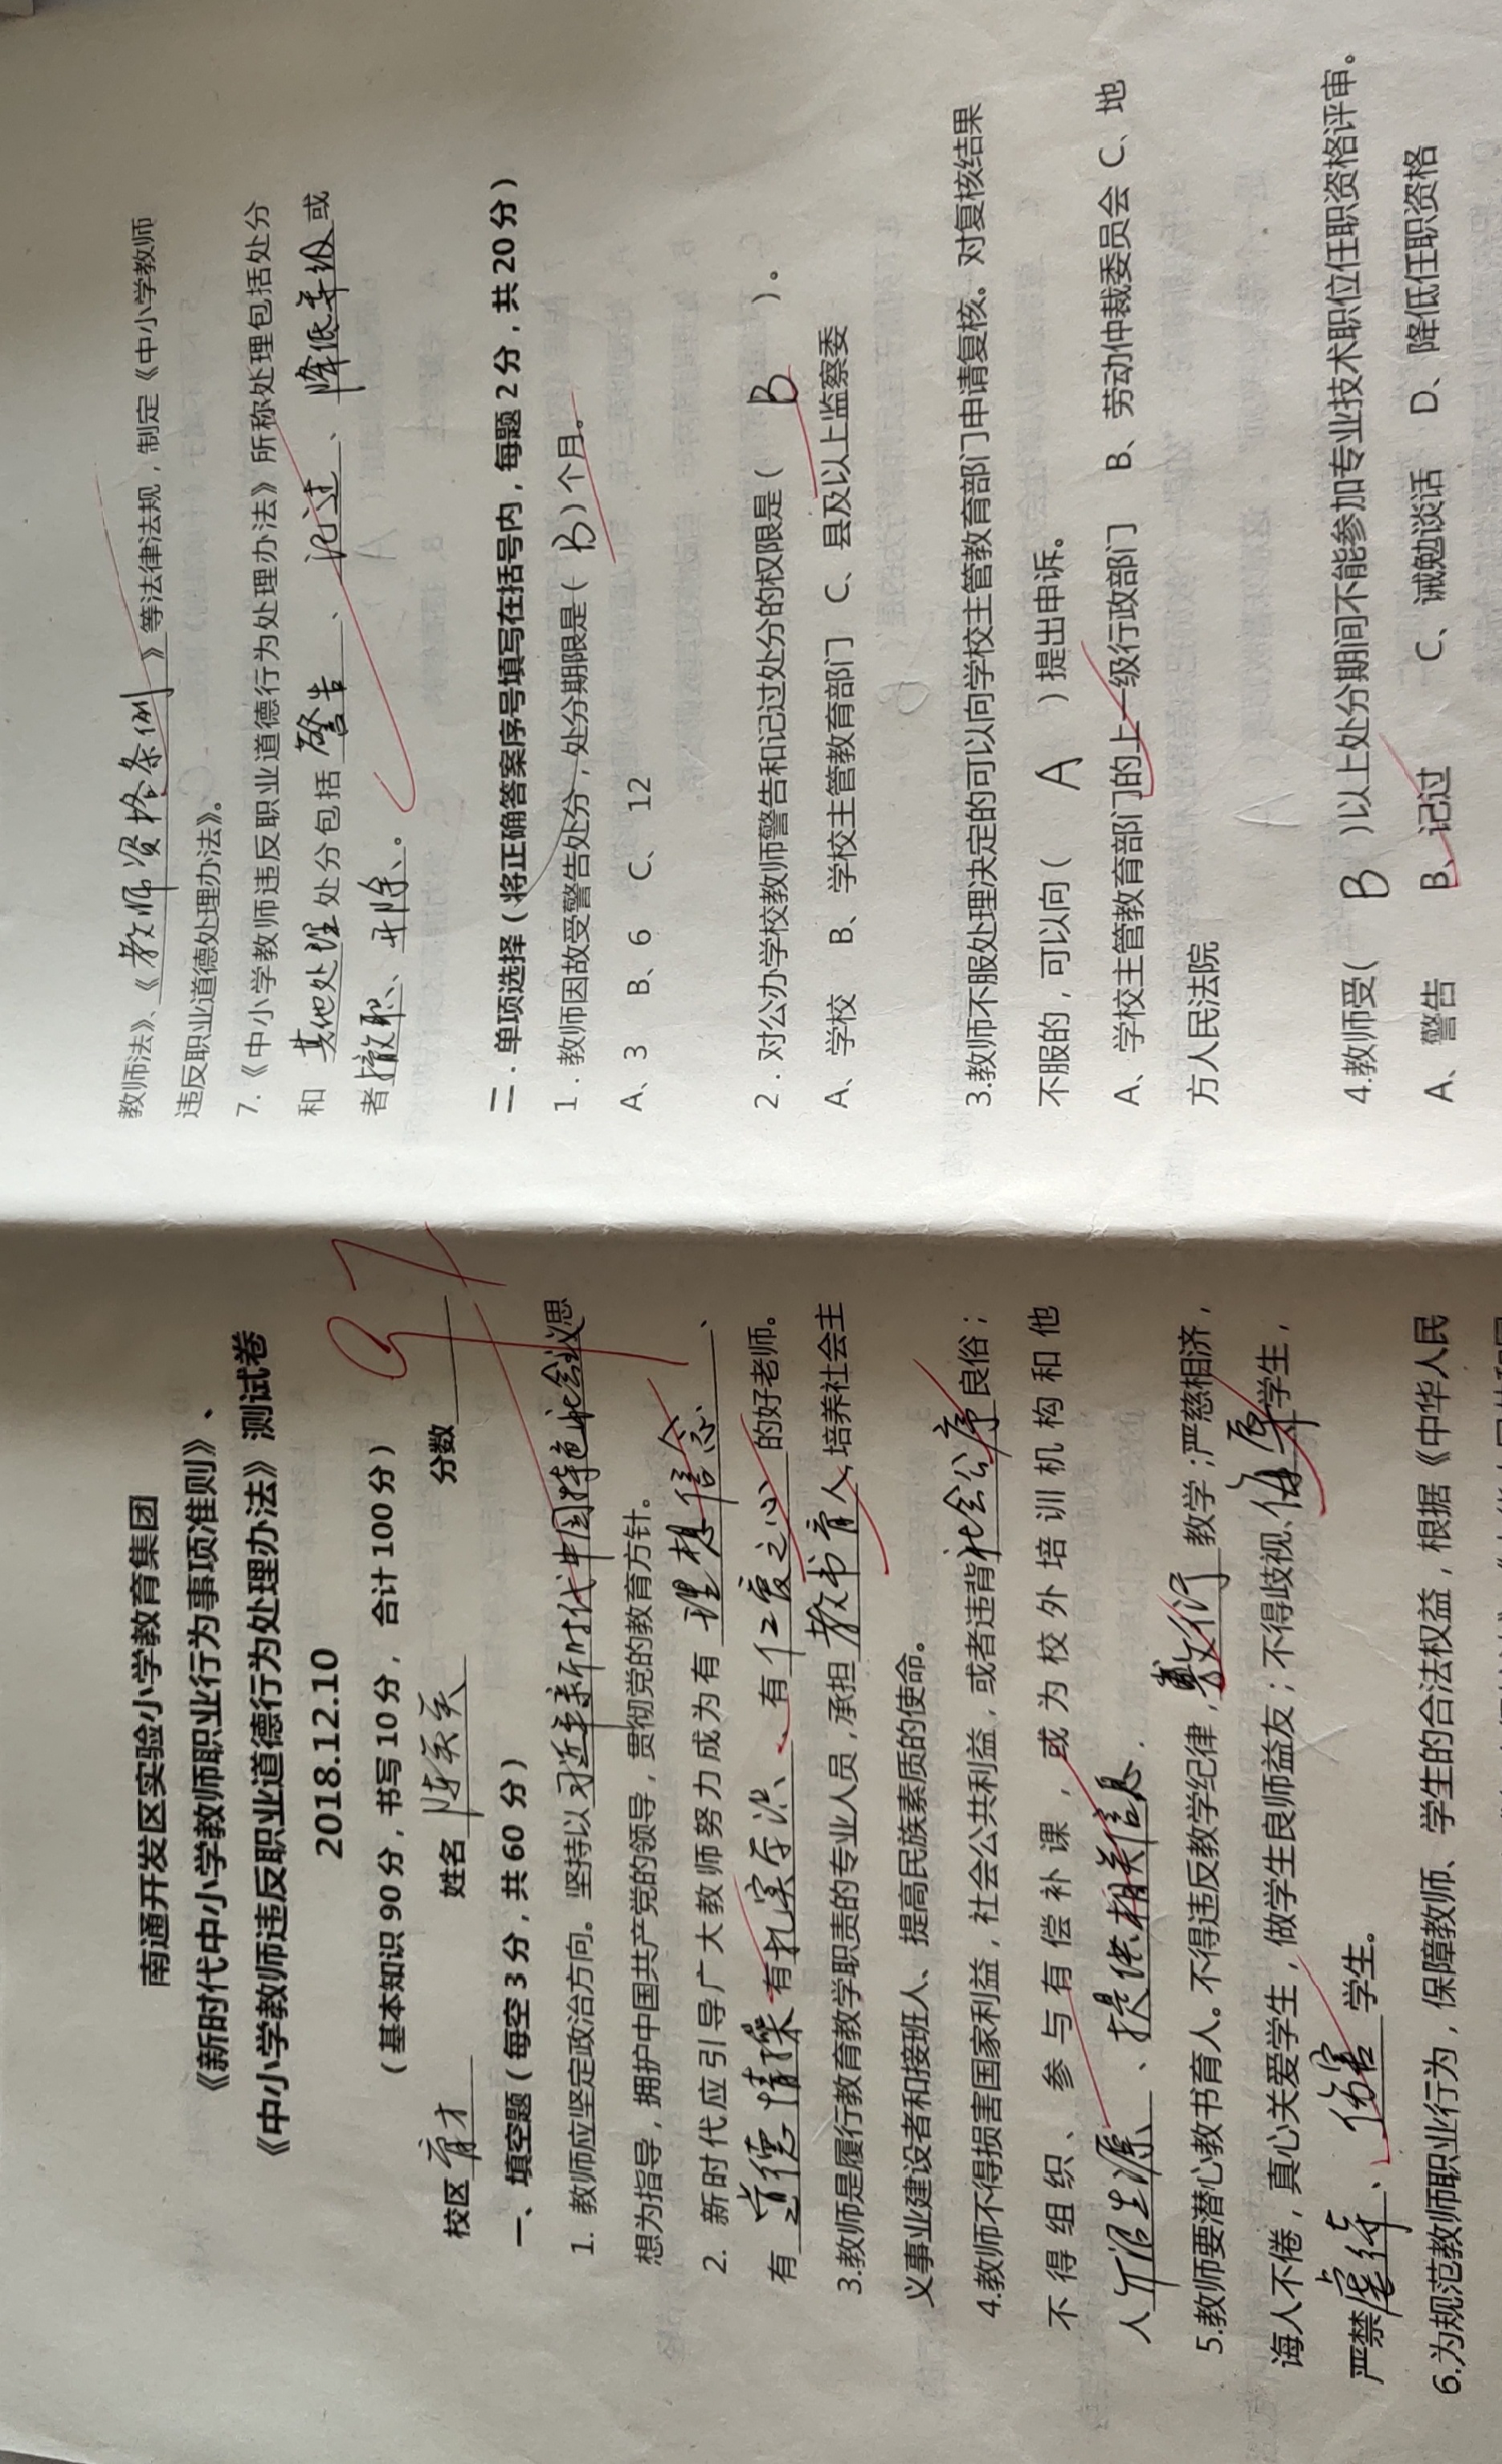 南通开发区实验小学教育集团
《新时代中小学教师职业行为事项准则》、
《中小学教师违反职业道德行为处理办法》测试卷
2018.12.10
（基本知识90分，书写10分，合计100分）
校区 育才 姓名 分数 97
一、填空题（每空3分，共60分）
1. 教师应坚定政治方向。坚持以习近平新时代中国特色社会主义思
想为指导，拥护中国共产党的领导，贯彻党的教育方针。
2. 新时代应引导广大教师努力成为有 理想信念 、
有 道德情操 有扎实学识、有 仁爱之心 的好老师。
3.教师是履行教育教学职责的专业人员，承担 教书育人，培养社会主
义事业建设者和接班人、提高民族素质的使命。
4.教师不得损害国家利益，社会公共利益，或者违背社会公序良俗；
不得组织、参与有偿补课，或为校外培训机构和他
人介绍生源、提供相关信息.
5.教师要潜心教书育人。不得违反教学纪律，敷衍教学；严慈相济，
诲人不倦，真心关爱学生，做学生良师益友；不得歧视、侮辱学生，
严禁虐待、伤害学生。
6.为规范教师职业行为，保障教师、学生的合法权益，根据《中华人民
教师法》、《教师资格条例》等法律法规，制定《中小学教师
违反职业道德处理办法》。
7.《中小学教师违反职业道德行为处理办法》所称处理包括处分
和 其他处理 处分包括 警告 、记过 、降低等级 或
者撤职、开除、。
二．单项选择（将正确答案序号填写在括号内，每题2分，共20分）
1．教师因故受警告处分，处分期限是（ B ）个月。
A、3 B、6 C、12
2．对公办学校教师警告和记过处分的权限是（ B ）。
A、学校 B、学校主管教育部门 C、县及以上监察委
3.教师不服处理决定的可以向学校主管教育部门申请复核。对复核结果
不服的，可以向（ A ）提出申诉。
A、学校主管教育部门的上一级行政部门 B、劳动仲裁委员会 C、地
方人民法院
4.教师受（ B ）以上处分期间不能参加专业技术职位任职资格评审。
A、警告 B、记过 C、诫勉谈话 D、降低任职资格